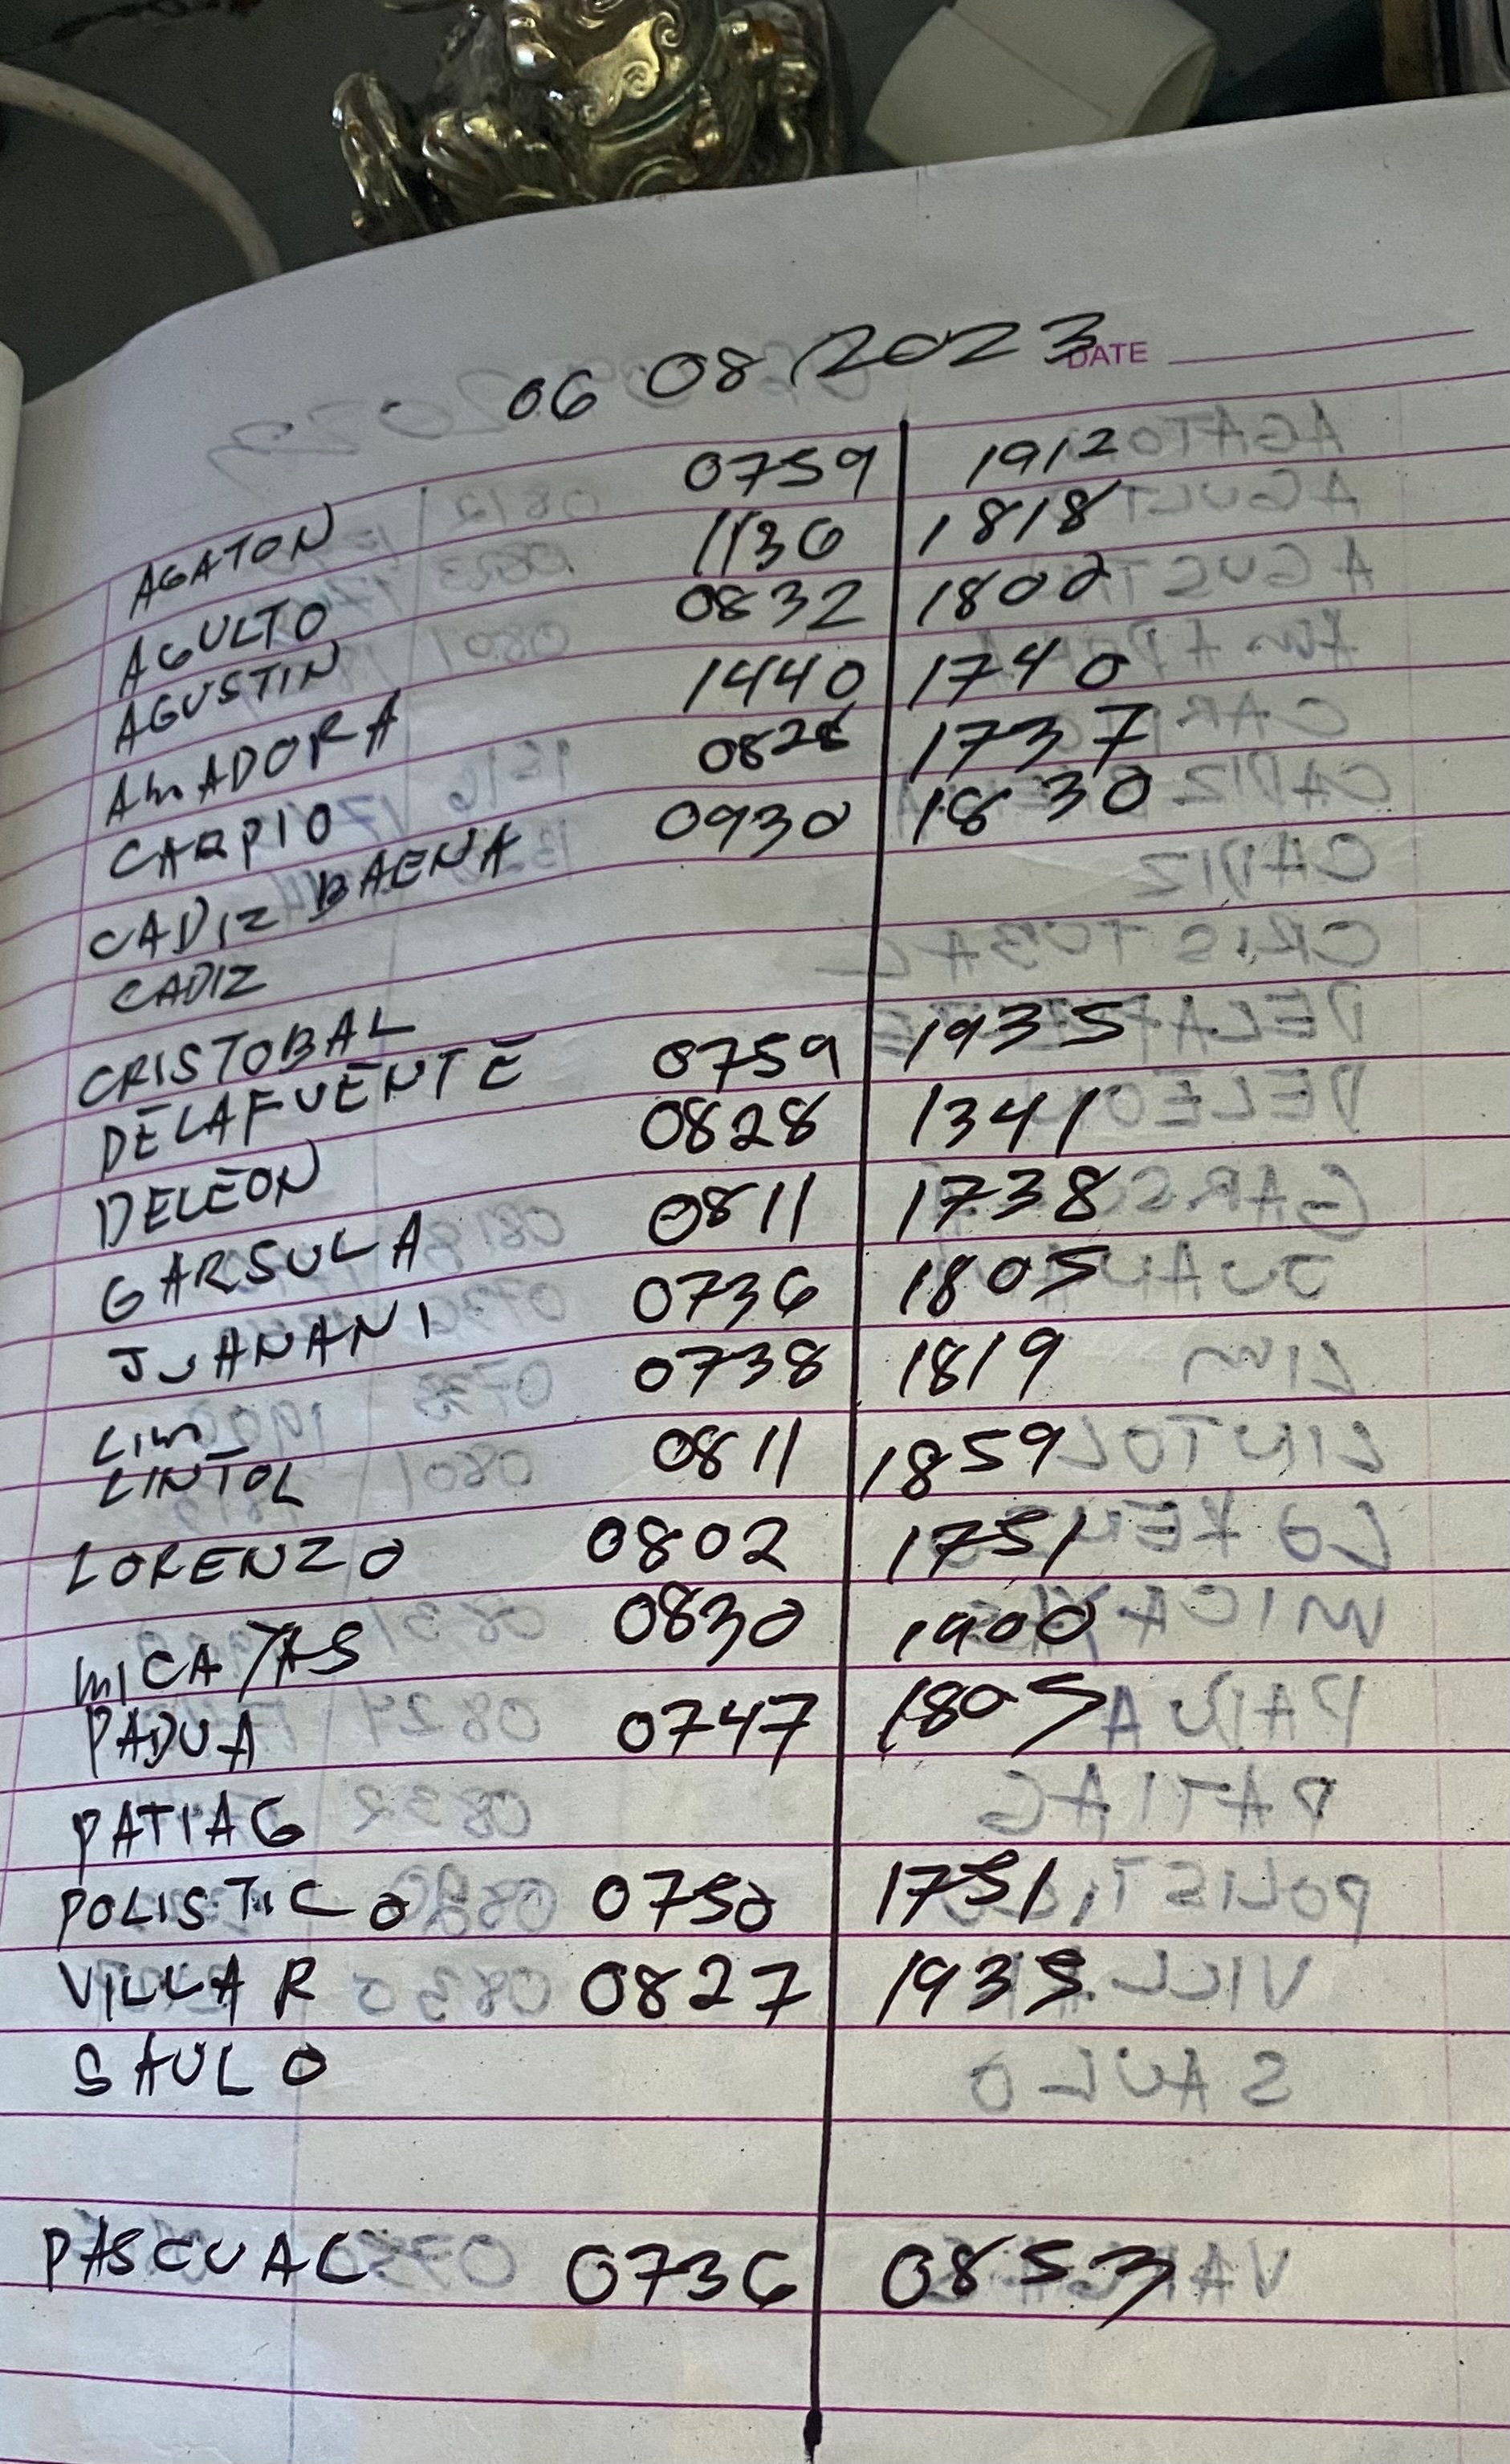 06 08 2023
DATE
AGATON 0759 1912
AGULTO 1136 1818
AGUSTIN 0832 1802
AMADORA 1440 1740
CARPIO 0828 1737
CADIZ BAENA 0930 1830
CADIZ
CRISTOBAL
DELAFUENTE 0759 1935
DELEON 0828 1341
GARSULA 0811 1738
JUANANI 0736 1805
LIM 0738 1819
LINTOL 0811 1859
LORENZO 0802 1751
MICAYAS 0830 1900
PADUA 0747 1805
PATIAG
POLISTICO 0750 1751
VILLAR 0827 1935
SAULO
PASCUAL 0736 0853